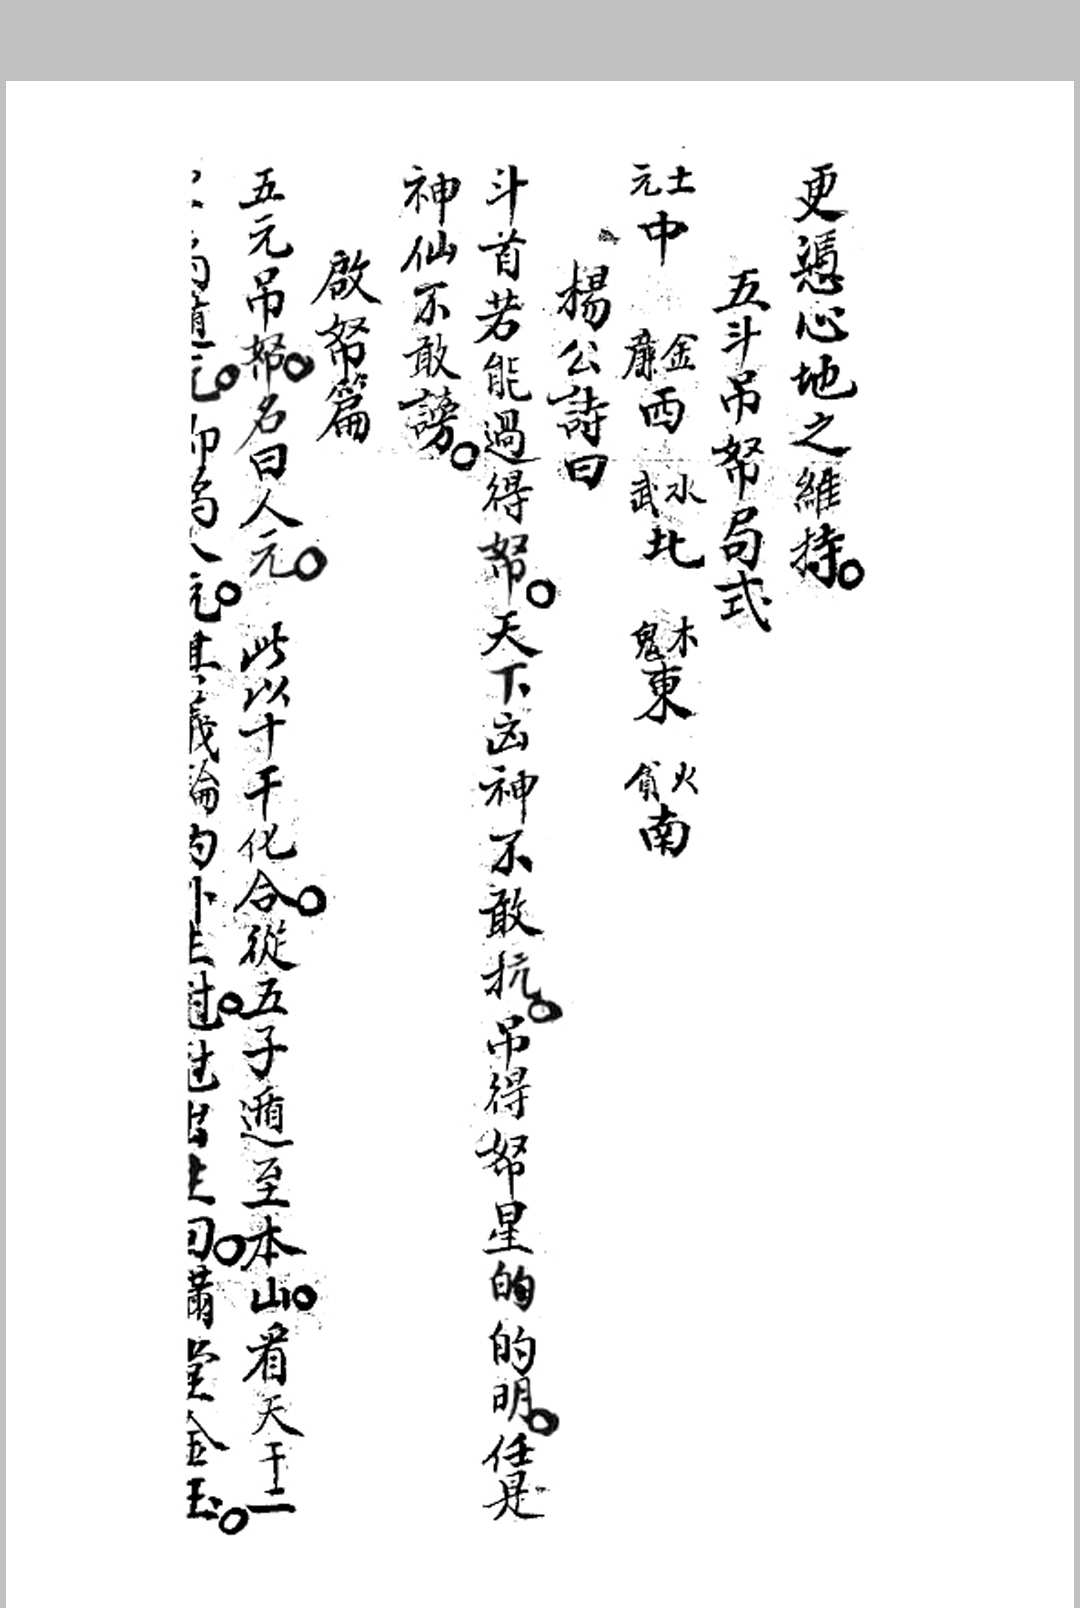 更憑心地之維持。
五斗吊帑局式
土元中 金廉西 水武北 木鬼東 火貪南
楊公詩曰
斗首若能過得帑。天下凶神不敢抗。吊得帑星的的明。任是
神仙不敢謗。
啟帑篇
五元吊帑。名曰人元。此以十干化合。從五子遁至本山。看天干二
義論內外生
滿堂金玉。